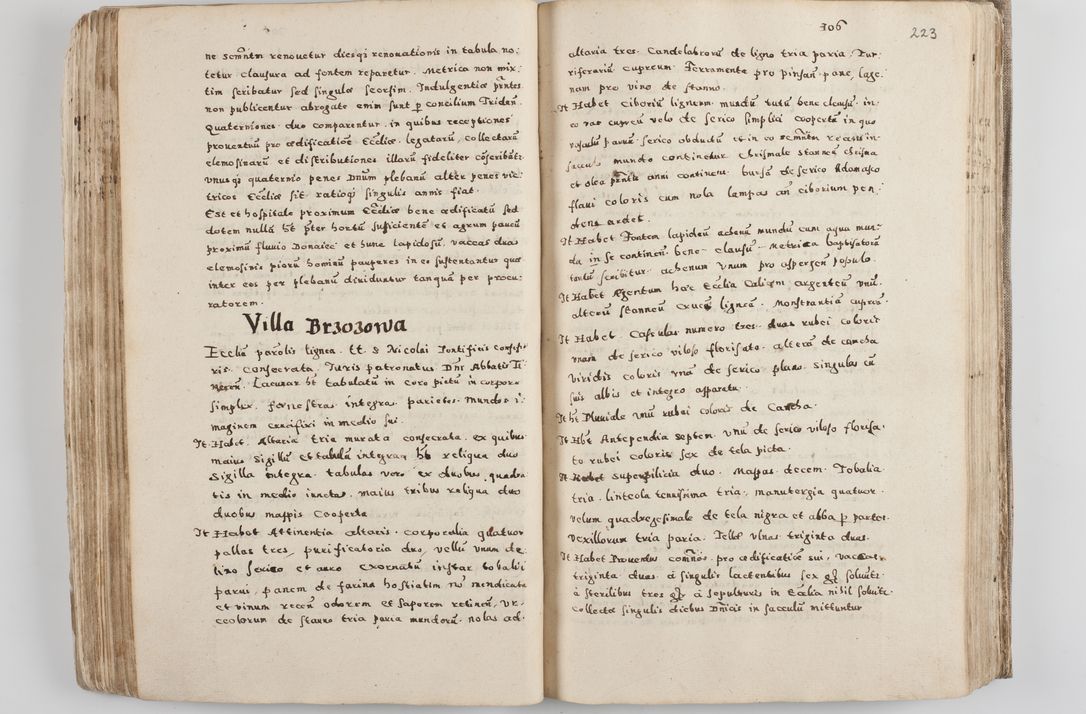 ne semtm renouetur diesq; renouationis in tabula no-
tetur clausura ad fontem reparetur. Metrica non mix-
tim scribatur sed singulæ seorsim. Indulgentiæ prntes
non publicentur abrogatæ enim sunt p concilium Tridn.
Quaterniones duo comparentur, in quibus receptiones
prouentuũ pro ædificatiõe Eccliæ, legatarũ, collectarũ
elemosinarũ et distributiones illarũ fideliter cõscribãt:
vnusq; quaternio penes Dnũm plebanũ alter penes vic-
tricos Eccliæ sit ratioq; singulis annis fiat.
Est et hospitale proximum Eccliæ bene ædificatũ sed
dotem nullã ht pter hortũ sufficientẽ et agrum paruũ
proximũ fluuio Donaiec et hunc lapidosũ, vaccas duas
elemosinis piorũ hominũ pauperes in eo sustentantur quæ
inter eos per plebanũ diuiduntur tanquã per procu-
ratorem.
Villa Brzozowa
Eccliã parolis lignea. tt. S Nicolai Pontificis confes-
ris. Consecrata. Iuris patronatus Dni Abbatis Ti-
necen. Lacunar ht tabulatũ in coro pictũ in corpore
simplex. fenestras integras parietes. mundos i-
maginem crucifixi in medio sui.
It. Habet. Altaria tria murata consecrata. ex quibus
maius sigillũ et tabulã integram ht reliqua duo
sigilla integra. tabulas vero ex duobus quadra
tis in medio iunctas. maius tribus reliqua duo
duobus mappis Cooperta
It Habet Attinentia altaris. corporalia quatuor
pallas tres, purificatoria duo, vellũ vnum de
lino serico et auro exornatũ instar tobaliæ
paruæ, panem de farina hostiatim nõ mendicata
et vinum recen odorem et saporem retinen, vr-
ceolorum de stanno tria paria mundorũ. nolas ad-
106
223
altaria tres. Candelabrorũ de ligno tria paria. Tur-
riferariũ cupreum. Ferramenta pro pinsan. pane, lage-
nam pro vino de stanno.
It Habet Ciboriũ ligneum mundũ tutũ bene clausũ. in
eo vas cupreũ velo de serico simplici coopertũ in quo
vasculũ paruũ serico obductũ et in eo semtm recens in
sacculo mundo continetur Chrismale stanneũ chrisma
et olea prntis anni continens bursã de serico Adamasco
flaui coloris cum nola lampas an ciborium pen-
dens ardet.
It Habet Fontem lapideũ æcheũ mundũ cum aqua mun-
da in se continen. bene clausũ. metrica baptisatorũ
tantũ scribitur. achenum vnum pro aspergen populo.
It Habet Argentum hæc Ecclia Calicem argenteũ vnũ.
alterũ stanneũ crucẽ ligneã. Monstrantiã cupreã.
It Habet Casulas numero tres. duas rubei coloris
vnam de serico viloso florisato. alterã de camcha
viridis coloris vnã de serico plano. singulas cũ
suis albis et integro apparatu.
It ht Pluuiale vnũ rubei coloris de Camcha.
It Hbt Antependia septem. vnũ de serico viloso florisa-
to rubei coloris sex de tela picta.
It Habet superpilicia duo. Mappas decem. Tobalia
tria. linteola tenuissima tria, manutergia quatuor.
velum quadragesimale de tela nigra et alba p partes.
vexillorum tria paria. Tellæ vlnas triginta duas.
It Habet Prouentus comnes pro ædificatiõe sui, vaccas
triginta duas. à singulis lactentibus sex gs soluũt.
à sterilibus tres gs à sepulturis in Ecclia nihil soluit.
collectæ singulis diebus Dnicis in sacculũ mittuntur